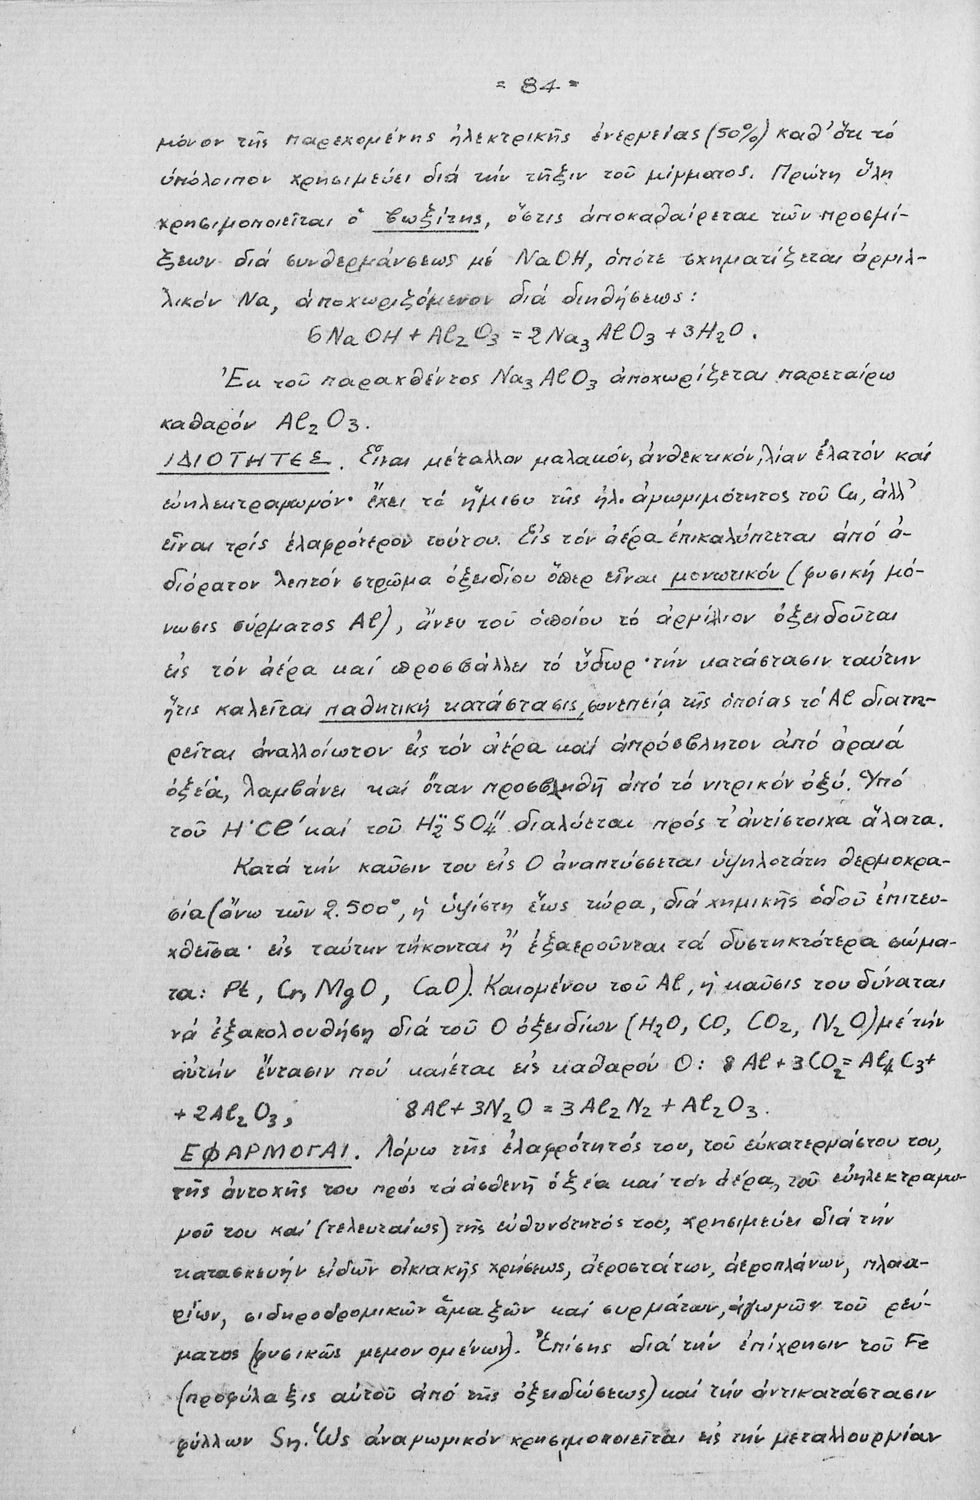 = 84 =
μόνον τῆς παρεχομένης ἠλεκτρικῆς ἐνεργείας (50%) καθ' ὅτι τό
ὑπόλοιπον χρησιμεύει διά τήν τῆξιν τοῦ μίγματος. Πρώτη ὕλη
χρησιμοποιεῖται ὁ βωξίτης, ὅστις ἀποκαθαίρεται τῶν προσμί-
ξεων διά συνθερμάνσεως μέ NaOH, ὁπότε σχηματίζεται ἀργιλ-
λικόν Na, ἀποχωριζόμενον διά διηθήσεως:
6NaOH + Al₂O₃ = 2Na₃AlO₃ + 3H₂O.
Ἐκ τοῦ παραχθέντος Na₃AlO₃ ἀποχωρίζεται παρεταίρω
καθαρόν Al₂O₃.
ΙΔΙΟΤΗΤΕΣ. Εἶναι μέταλλον μαλακόν, ἀνθεκτικόν, λίαν ἐλατόν καί
εὐηλεκτραγωγόν· ἔχει τό ἥμισυ τῆς ἠλ. ἀγωγιμότητος τοῦ Cu, ἀλλ'
εἶναι τρίς ἐλαφρότερον τούτου. Εἰς τόν ἀέρα ἐπικαλύπτεται ἀπό ἀ-
διόρατον λεπτόν στρῶμα ὀξειδίου ὅπερ εἶναι μονωτικόν (φυσική μό-
νωσις σύρματος Al), ἄνευ τοῦ ὁποίου τό ἀργίλλιον ὀξειδοῦται
εἰς τόν ἀέρα καί προσβάλλει τό ὕδωρ· τήν κατάστασιν ταύτην
ἥτις καλεῖται παθητική κατάστασις, συνεπείᾳ τῆς ὁποίας τό Al διατη-
ρεῖται ἀναλλοίωτον εἰς τόν ἀέρα καί ἀπρόσβλητον ἀπό ἀραιά
ὀξέα, λαμβάνει καί ὅταν προσβληθῆ ἀπό τό νιτρικόν ὀξύ. Ὑπό
τοῦ H˙Cl′ καί τοῦ H₂¨SO₄″ διαλύεται πρός τ' ἀντίστοιχα ἅλατα.
Κατά τήν καῦσιν του εἰς O ἀναπτύσσεται ὑψηλοτάτη θερμοκρα-
σία (ἄνω τῶν 2.500°, ἡ ὑψίστη ἕως τώρα, διά χημικῆς ὁδοῦ ἐπιτευ-
χθεῖσα· εἰς ταύτην τήκονται ἤ ἐξαεροῦνται τά δυστηκτότερα σώμα-
τα: Pt, Cr, MgO, CaO). Καιομένου τοῦ Al, ἡ καῦσις του δύναται
νά ἐξακολουθήση διά τοῦ O ὀξειδίων (H₂O, CO, CO₂, N₂O) μέ τήν
αὐτήν ἔντασιν πού καίεται εἰς καθαρόν O: 8Al + 3CO₂ = Al₄C₃ +
+ 2Al₂O₃, 8Al + 3N₂O = 3Al₂N₂ + Al₂O₃.
ΕΦΑΡΜΟΓΑΙ. Λόγω τῆς ἐλαφρότητός του, τοῦ εὐκατεργάστου του,
τῆς ἀντοχῆς του πρός τά ἀσθενῆ ὀξέα καί τόν ἀέρα, τοῦ εὐηλεκτραγω-
γοῦ του καί (τελευταίως) τῆς εὐθυνότητός του, χρησιμεύει διά τήν
κατασκευήν εἰδῶν οἰκιακῆς χρήσεως, ἀεροστάτων, ἀεροπλάνων, πλοι-
ρίων, σιδηροδρομικῶν ἁμαξῶν καί συρμάτων, ἀγωγῶν τοῦ ρεύ-
ματος (φυσικῶς μεμονομένων). Ἐπίσης διά τήν ἐπίχρησιν τοῦ Fe
(προφύλαξις αὐτοῦ ἀπό τῆς ὀξειδώσεως) καί τήν ἀντικατάστασιν
φύλλων Sn. Ὡς ἀναγωγικόν χρησιμοποιεῖται εἰς τήν μεταλλουργίαν